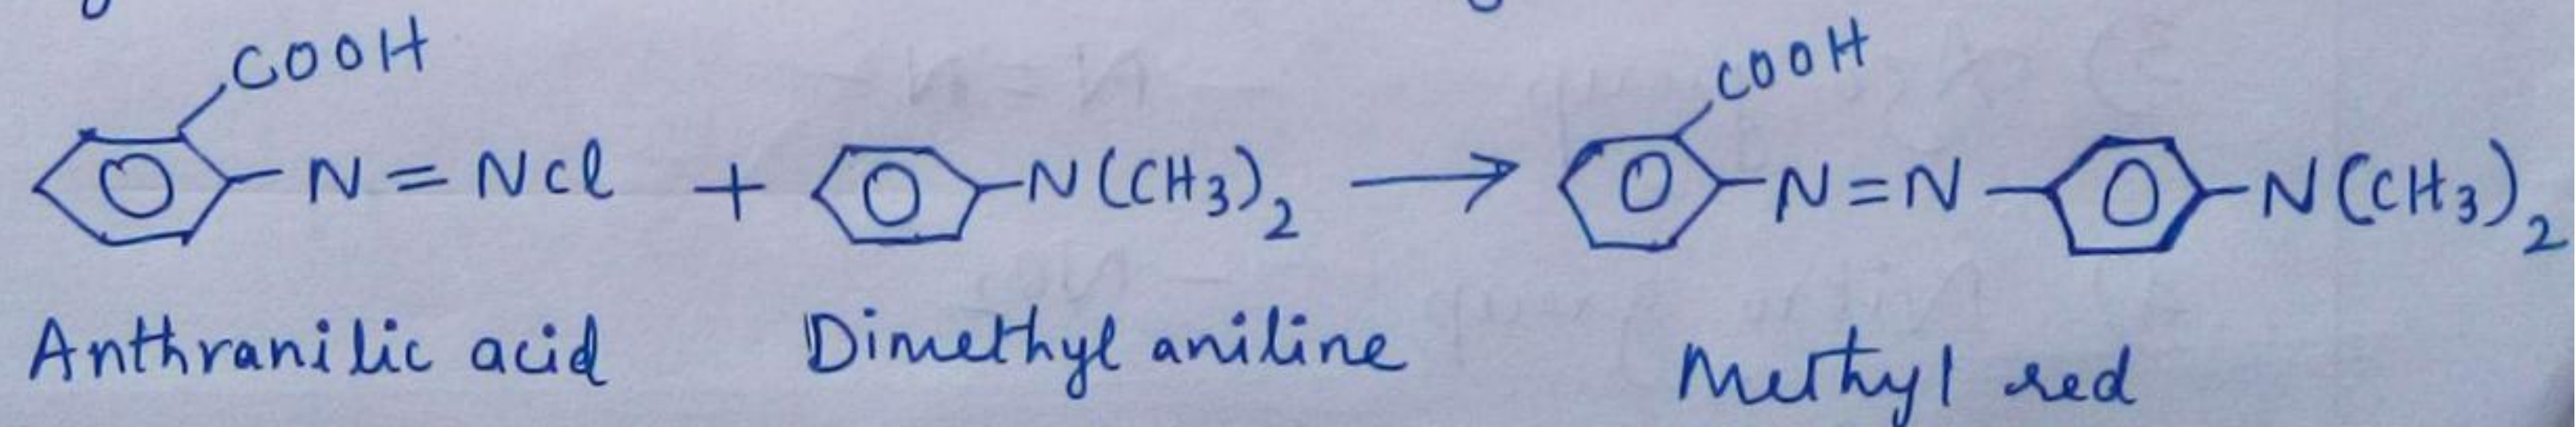 COOH COOH
N=NCl + N(CH3)2 → N=N N(CH3)2
Anthranilic acid Dimethyl aniline Methyl red